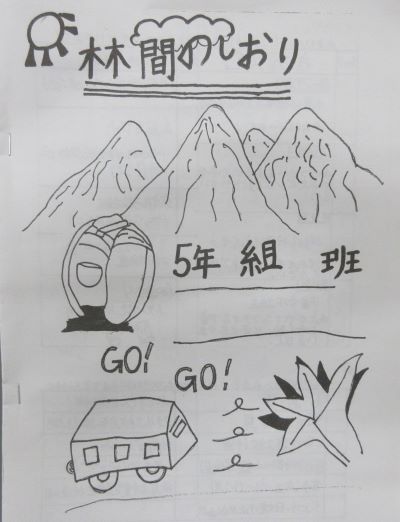 林間のしおり
5年 組 班
GO!
GO!